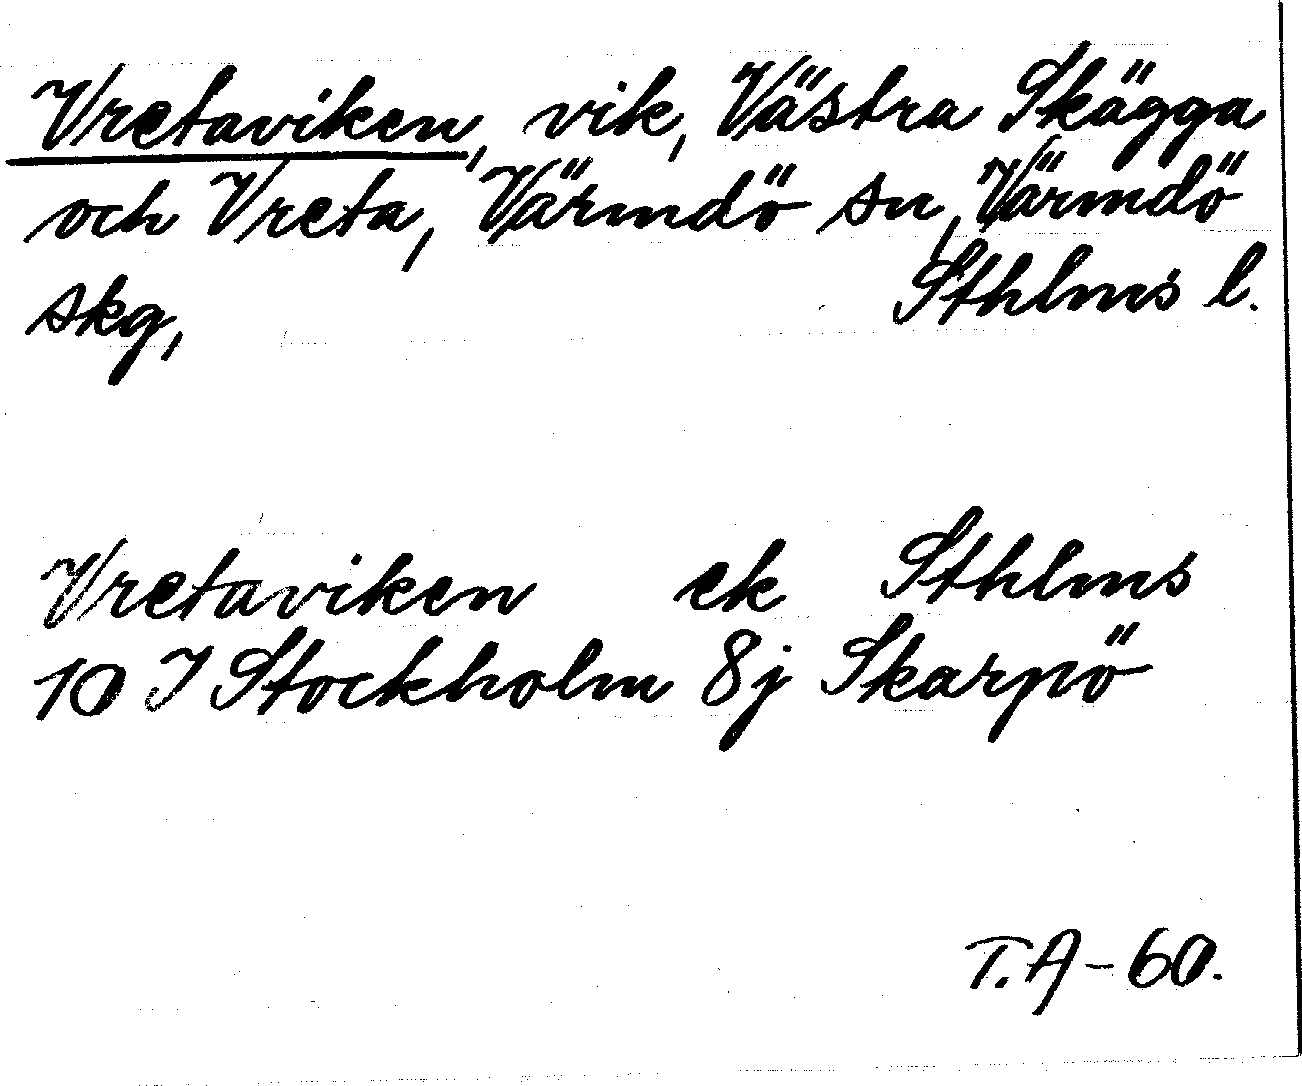 Vretaviken, vik, Västra Skägga
och Vreta, Värmdö sn, Värmdö
skg, Sthlms l.
Vretaviken ek Sthlms
10 I Stockholm 8j Skarpö
T.A-60.